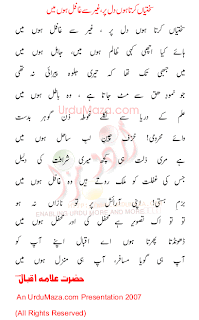 سختیاں کرتا ہوں دل پر، غیر سے غافل ہوں میں
سختیاں کرتا ہوں دل پر، غیر سے غافل ہوں میں
ہائے کیا اچھی کہی ظالم ہوں میں، جاہل ہوں میں
میں جبھی تک تھا کہ تیری جلوہ پیرائی نہ تھی
جو نمود حق سے مٹ جاتا ہے، وہ باطل ہوں میں
علم کے دریا سے نکلے غوطہ زن گوہر بدست
وائے محرومی! خزف چین لب ساحل ہوں میں
ہے مری ذلت ہی کچھ میری شرافت کی دلیل
جس کی غفلت کو ملک روتے ہیں وہ غافل ہوں میں
بزم ہستی! اپنی آرائش پر تو نازاں نہ ہو
تو تو اک تصویر ہے محفل کی اور محفل ہوں میں
ڈھونڈتا پھرتا ہوں اے اقبال اپنے آپ کو
آپ ہی گویا مسافر، آپ ہی منزل ہوں میں
حضرت علامہ اقبال
An UrduMaza.com Presentation 2007
(All Rights Reserved)
UrduMaza.com
اردو مزہ